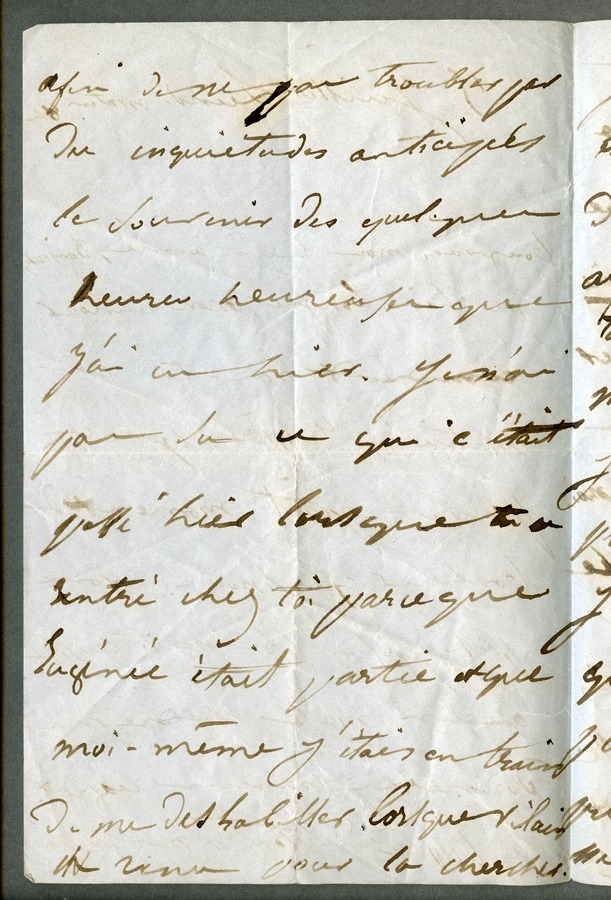 afin de ne pas troubler par
des inquiétudes anticipés
le souvenir des quelques
heures heureuses que
j'ai eu hier. Je n'ai
pas su ce qui c'était
passé hier lorsque tu
rentré chez toi parceque
Eugénie était partie et que
moi-même j'étais en train
de me deshabiller lorsque
venu pour la chercher.